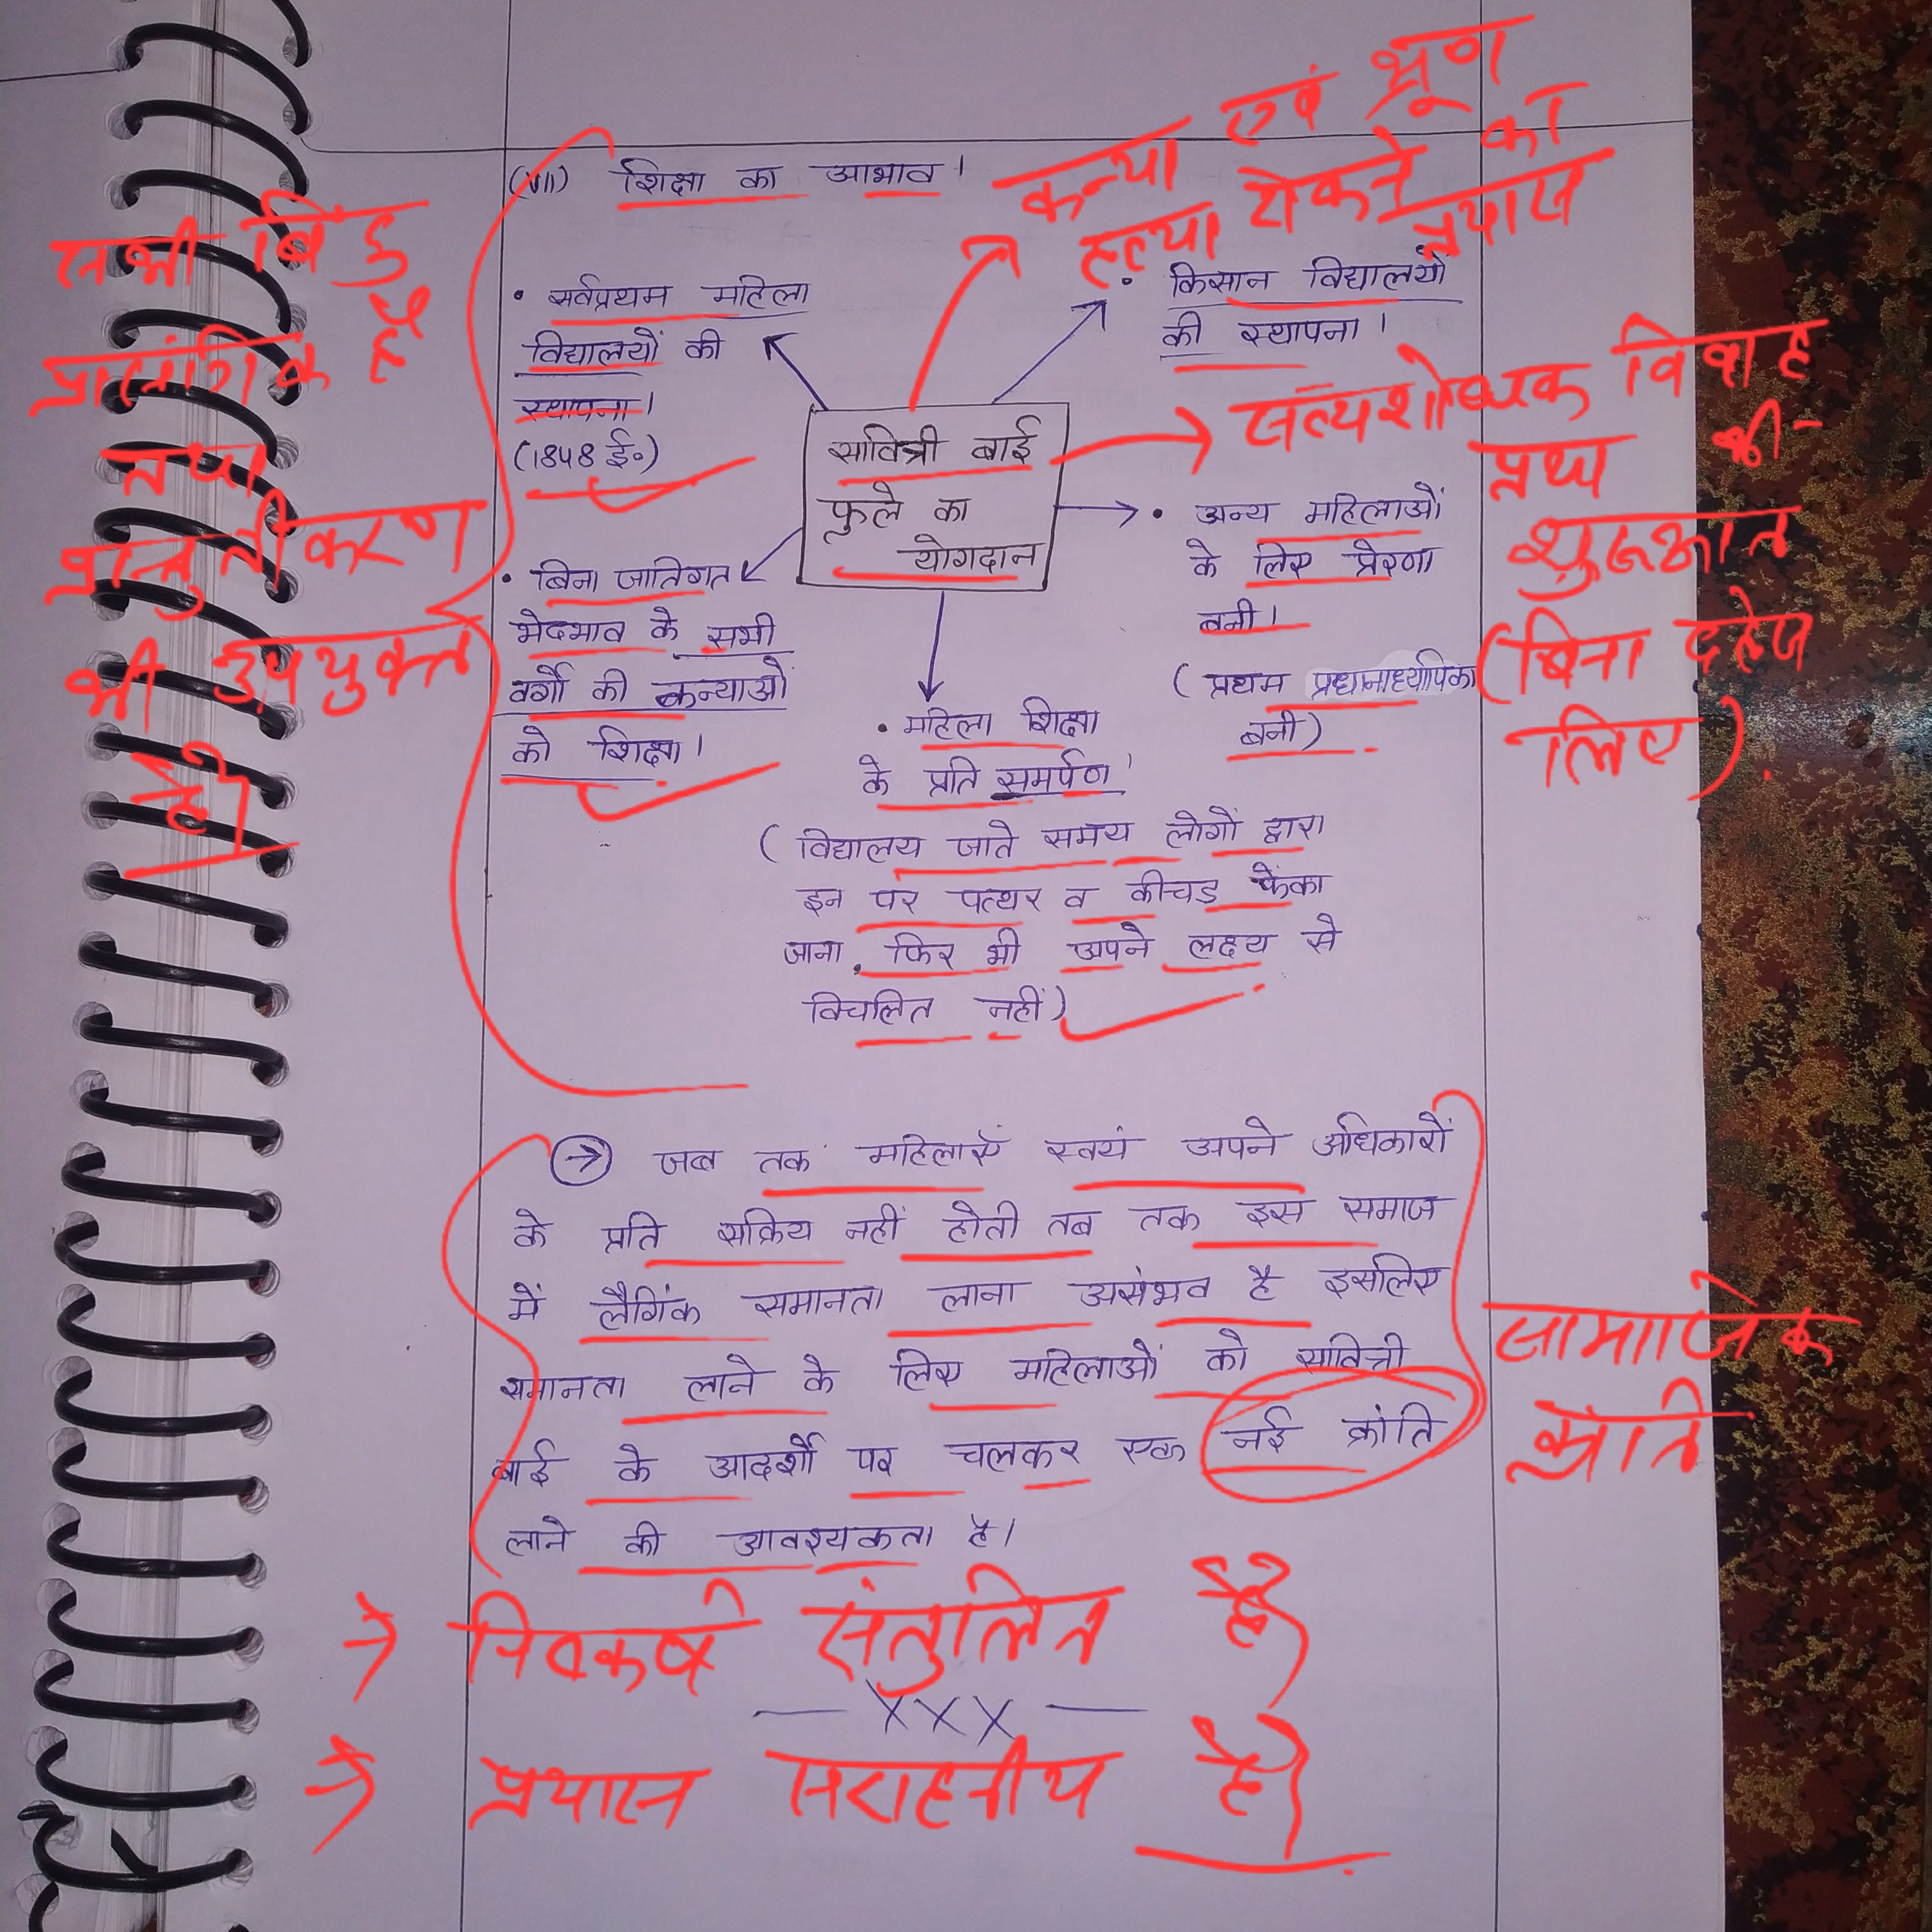 (VII) शिक्षा का आभाव।
कन्या एवं भ्रूण
हत्या रोकने का
प्रयास
सभी बिंदु
प्रासंगिक हैं
तथा
प्रस्तुतीकरण
भी उपयुक्त
है।
• सर्वप्रथम महिला
विद्यालयों की
स्थापना।
(1848 ई०)
• किसान विद्यालयों
की स्थापना।
सावित्री बाई
फुले का
योगदान
सत्यशोधक विवाह
प्रथा की
शुरूआत
(बिना दहेज
लिए)
• अन्य महिलाओं
के लिए प्रेरणा
बनी।
(प्रथम प्रधानाध्यापिका
बनी)
• बिना जातिगत
भेदभाव के सभी
वर्गों की कन्याओं
को शिक्षा।
• महिला शिक्षा
के प्रति समर्पण।
(विद्यालय जाते समय लोगों द्वारा
इन पर पत्थर व कीचड फेंका
जाना, फिर भी अपने लक्ष्य से
विचलित नहीं)
→ जब तक महिलाएं स्वयं अपने अधिकारों
के प्रति सक्रिय नहीं होती तब तक इस समाज
में लैगिंक समानता लाना असंभव है इसलिए
समानता लाने के लिए महिलाओं को सावित्री
बाई के आदर्शों पर चलकर एक नई क्रांति
लाने की आवश्यकता है।
सामाजिक
क्रांति
→ निष्कर्ष संतुलित है।
— XXX —
→ प्रयास सराहनीय है।